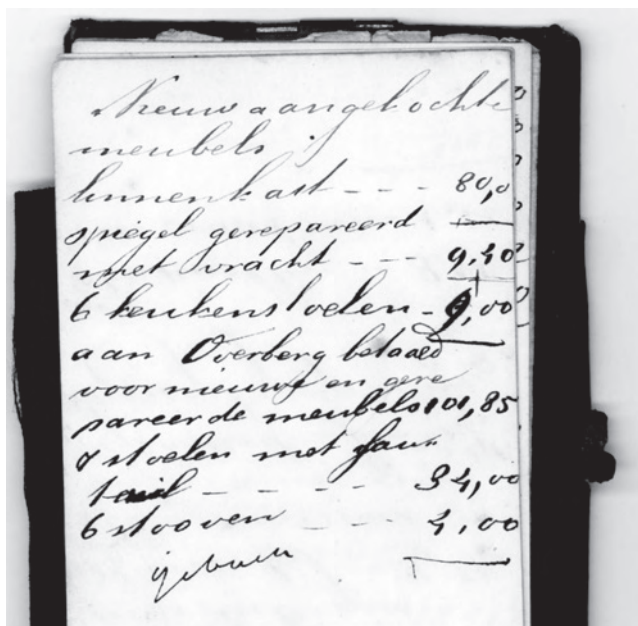 Nieuw aangekochte
meubels
linnenkast - - - 80,0
spiegel gerepareerd
met vracht - - - 9,40
6 keukenstoelen - 9,00
aan Overberg betaald
voor nieuwe en gere
pareerde meubels 101,85
7 stoelen met fau
teuil - - - - - 34,00
6 stooven - - - 4,00